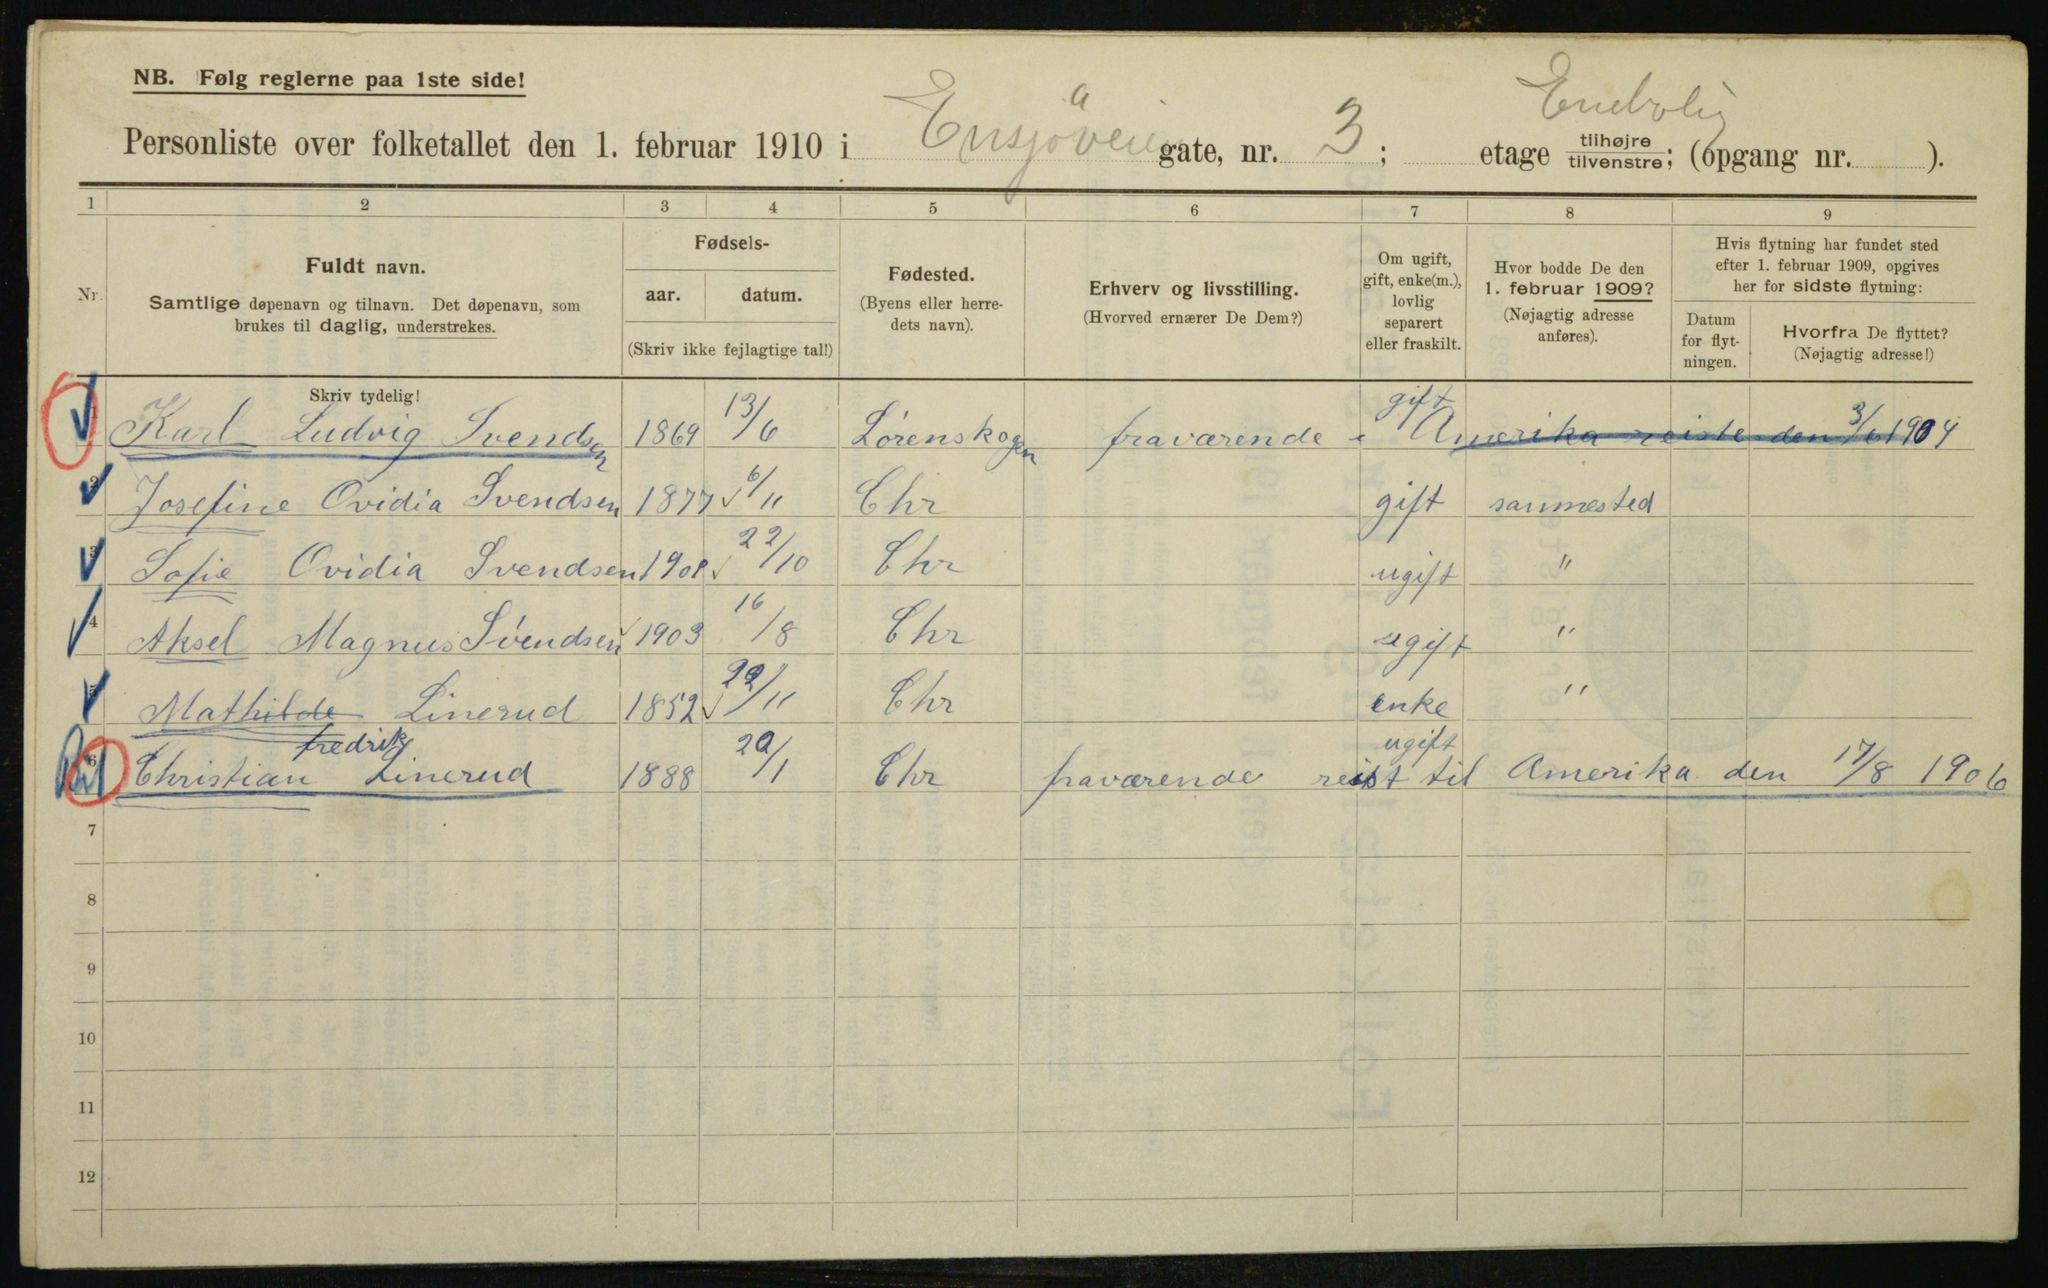 NB. Følg reglerne paa 1ste side!
Personliste over folketallet den 1. februar 1910 i Ensjöveien gate, nr. 3; etage tilhøjre tilvenstre; (opgang nr. ).
a
Enebolig
1 2 3 4 5 6 7 8 9
Nr.
Fuldt navn.
Samtlige døpenavn og tilnavn. Det døpenavn, som
brukes til daglig, understrekes.
Skriv tydelig!
Fødsels-
aar. datum.
(Skriv ikke fejlagtige tal!)
Fødested.
(Byens eller herre-
dets navn).
Erhverv og livsstilling.
(Hvorved ernærer De Dem?)
Om ugift,
gift, enke(m.),
lovlig
separert
eller fraskilt.
Hvor bodde De den
1. februar 1909?
(Nøjagtig adresse
anføres).
Hvis flytning har fundet sted
efter 1. februar 1909, opgives
her for sidste flytning:
Datum
for flyt-
ningen.
Hvorfra De flyttet?
(Nøjagtig adresse!)
1 Karl Ludvig Svendsen 1869 13/6 Lørenskogen fraværende i gift Amerika reiste den 3/6 1904
2 Josefine Ovidia Svendsen 1877 6/11 Chr gift sammested
3 Sofie Ovidia Svendsen 1901 22/10 Chr ugift "
4 Aksel Magnus Svendsen 1903 16/8 Chr ugift "
5 Mathilde Linerud 1852 22/11 Chr enke "
fredrik
6 Christian Linerud 1888 20/1 Chr fraværende ugift reist til Amerika den 17/8 1906
7
8
9
10
11
12